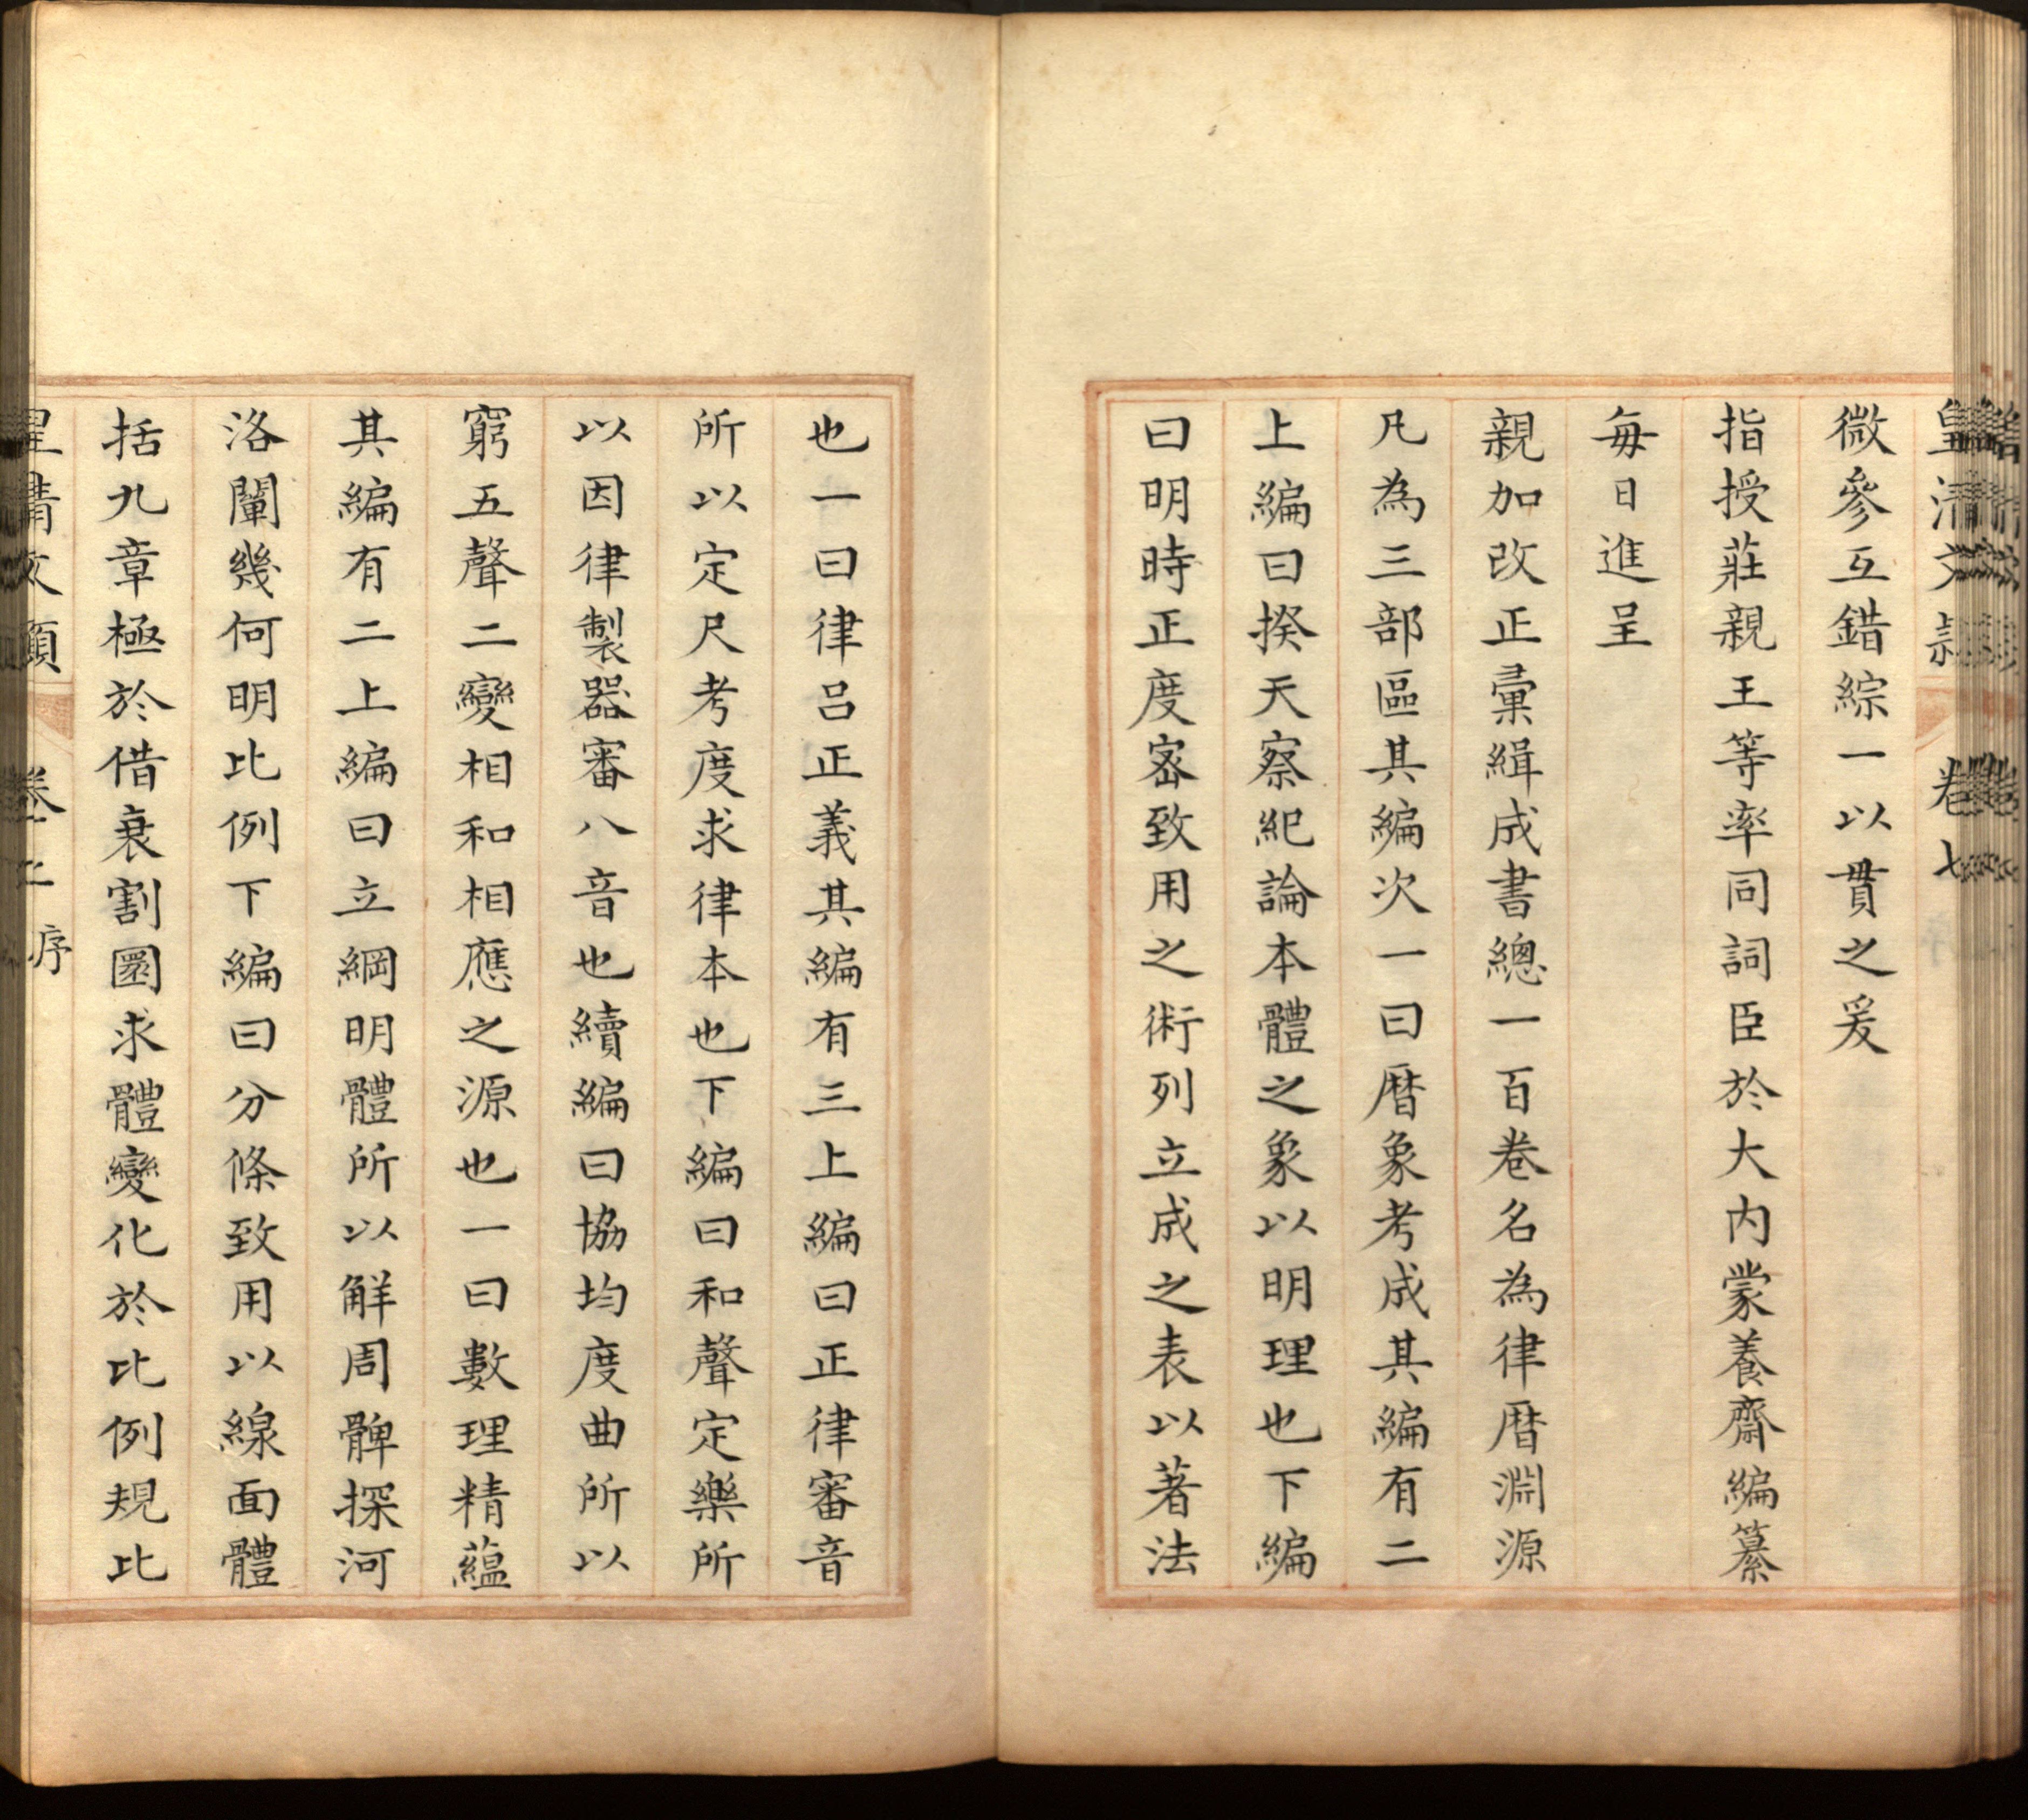 皇清文穎 卷七
微參互錯綜一以貫之爰
指授莊親王等率同詞臣於大內蒙養齋編纂
每日進呈
親加改正彙緝成書總一百卷名為律暦淵源
凡為三部區其編次一曰暦象考成其編有二
上編曰揆天察紀論本體之象以明理也下編
曰明時正度宻致用之術列立成之表以著法
也一曰律呂正義其編有三上編曰正律審音
所以定尺考度求律本也下編曰和聲定樂所
以因律製器審八音也續編曰協均度曲所以
窮五聲二變相和相應之源也一曰數理精蘊
其編有二上編曰立綱明體所以解周髀探河
洛闡幾何明比例下編曰分條致用以線面體
括九章極於借衰割圜求體變化於比例規比
皇清文穎 卷七 序